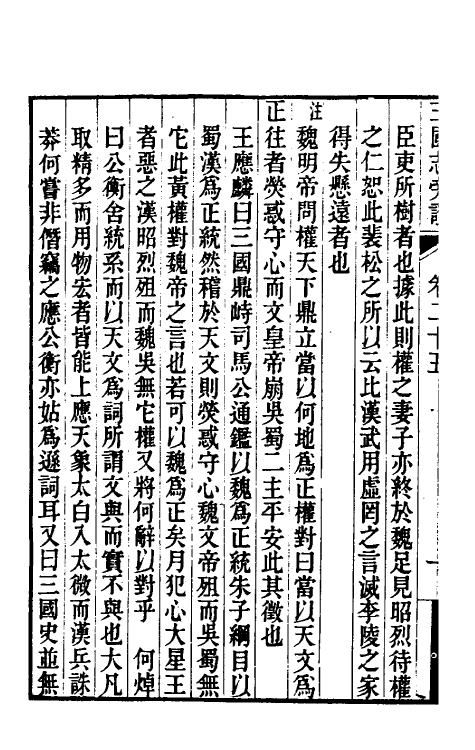 三國志旁證 卷二十五
臣吏所樹者也據此則權之妻子亦終於魏足見昭烈待權
之仁恕此裴松之所以云比漢武用虛罔之言滅李陵之家
得失懸遠者也
注魏明帝問權天下鼎立當以何地為正權對曰當以天文為
正往者熒惑守心而文皇帝崩吳蜀二主平安此其徵也
王應麟曰三國鼎峙司馬公通鑑以魏為正統朱子綱目以
蜀漢為正統然稽於天文則熒惑守心魏文帝殂而吳蜀無
它此黃權對魏帝之言也若可以魏為正矣月犯心大星王
者惡之漢昭烈殂而魏吳無它權又將何辭以對乎 何焯
曰公衡舍統系而以天文為詞所謂文與而實不與也大凡
取精多而用物宏者皆能上應天象太白入太微而漢兵誅
莽何嘗非僭竊之應公衡亦姑為遜詞耳又曰三國史並無